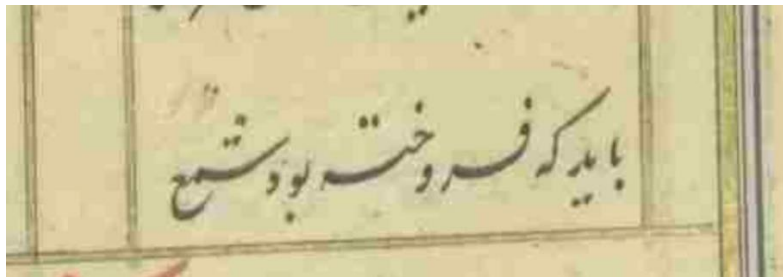 باید که فروخته بود شمع